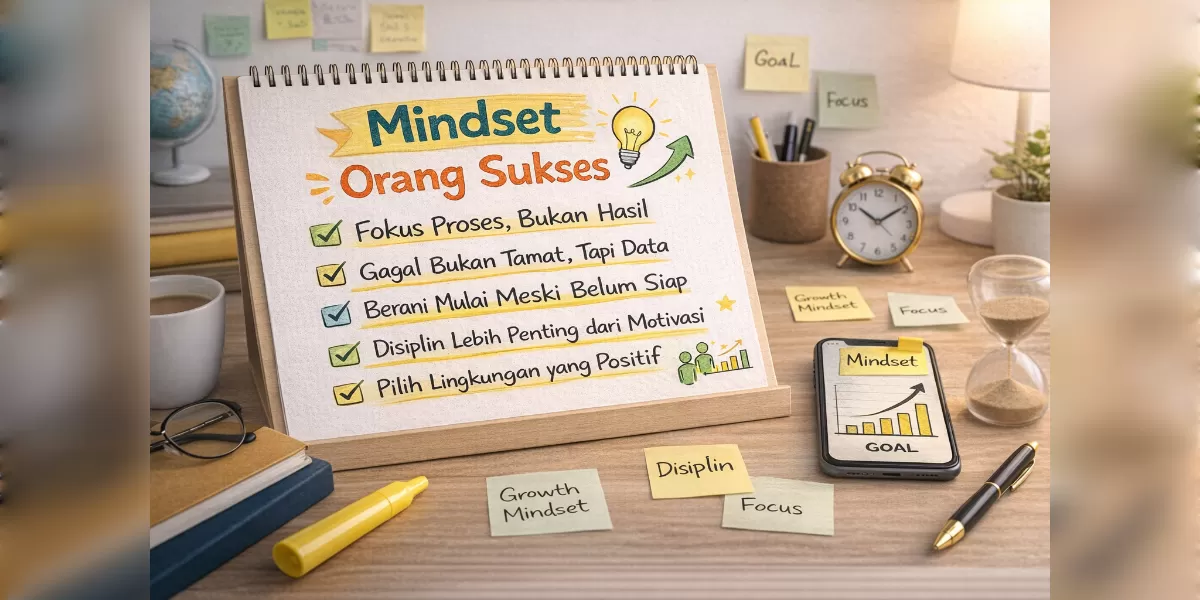 Mindset
Orang Sukses
Fokus Proses, Bukan Hasil
Gagal Bukan Tamat, Tapi Data
Berani Mulai Meski Belum Siap
Disiplin Lebih Penting dari Motivasi
Pilih Lingkungan yang Positif
GOAL
Focus
Growth
Mindset
Focus
Mindset
GOAL
Disiplin
Growth
Mindset
Focus